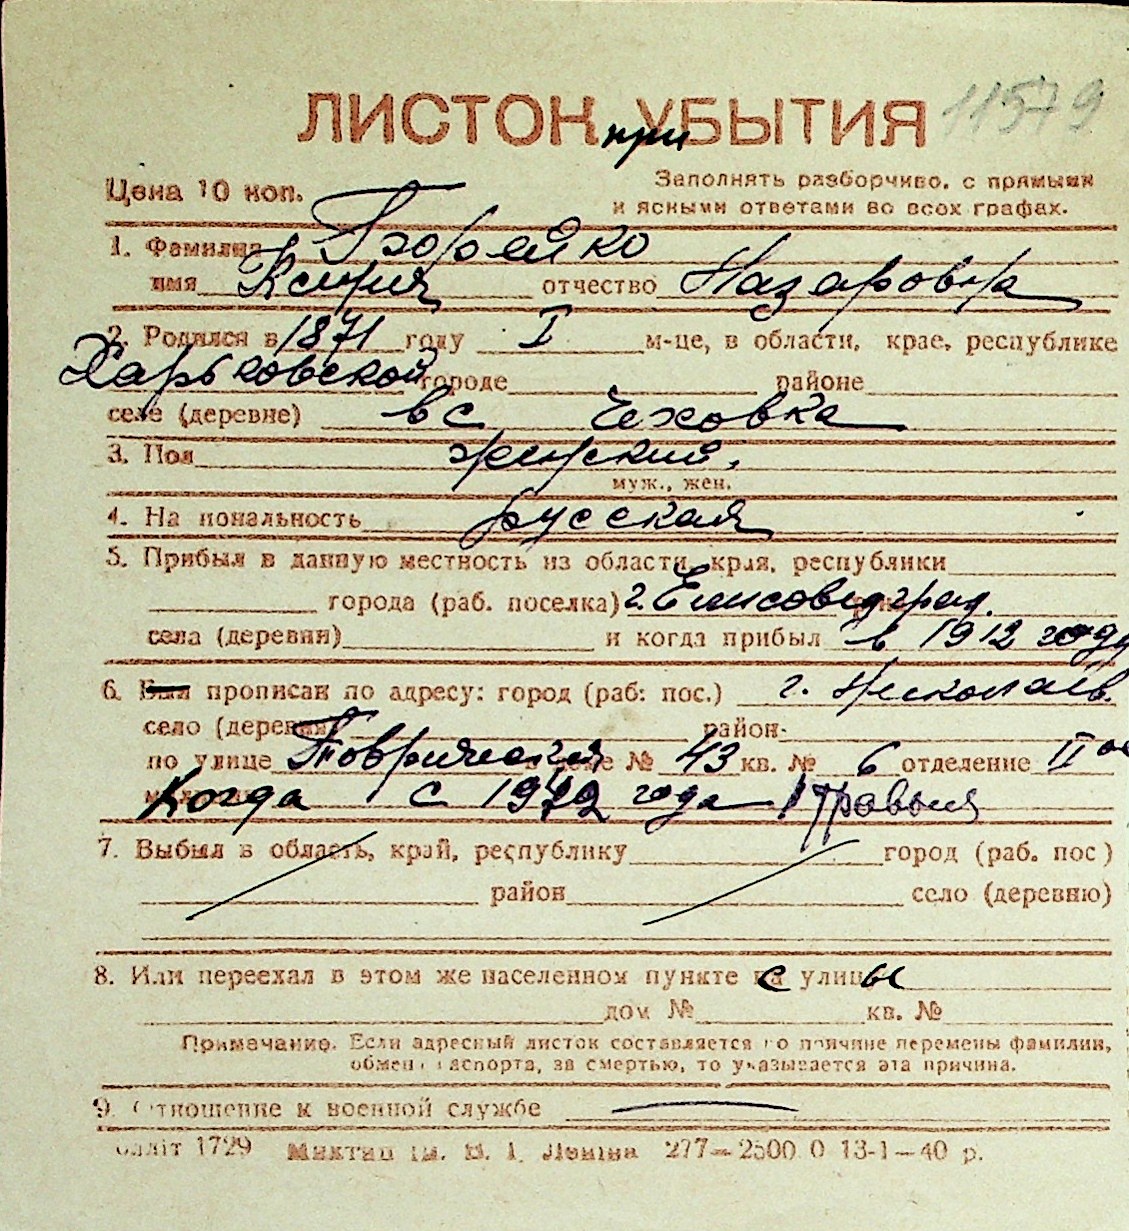 11579
ЛИСТОК при УБЫТИЯ
Цена 10 коп.
Заполнять разборчиво, с прямыми
и ясными ответами во всех графах.
1. Фамилия
имя Ксения отчество Назаровна
2. Родился в 1871 году I м-це, в области, крае, республике
Харьковской городе районе
селе (деревне) в с Чеховка
3. Пол женский,
муж., жен.
4. Национальность русская
5. Прибыл в данную местность из области, края, республики
города (раб. поселка) г. Елисоветград.
села (деревни) и когда прибыл в 1912 году
6. Был прописан по адресу: город (раб: пос.) г. Николаев.
село (деревня) район
по улице Таврическая доме № 43 кв. № 6 отделение II ое
Когда с 1912 года
7. Выбыл в область, край, республику город (раб. пос)
район село (деревню)
8. Или переехал в этом же населенном пункте с улицы
дом № кв. №
Примечание. Если адресный листок составляется по причине перемены фамилии,
обмена паспорта, за смертью, то указывается эта причина.
9. Отношение к военной службе
Обліт 1729 Миктип ім. В. І. Леніна 277—2500.0 13-1—40 р.